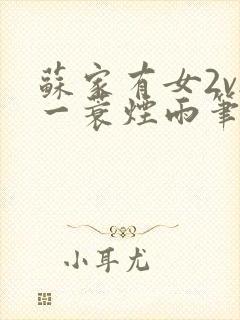 蘇家有女2v
一蓑煙雨筆
小耳尤